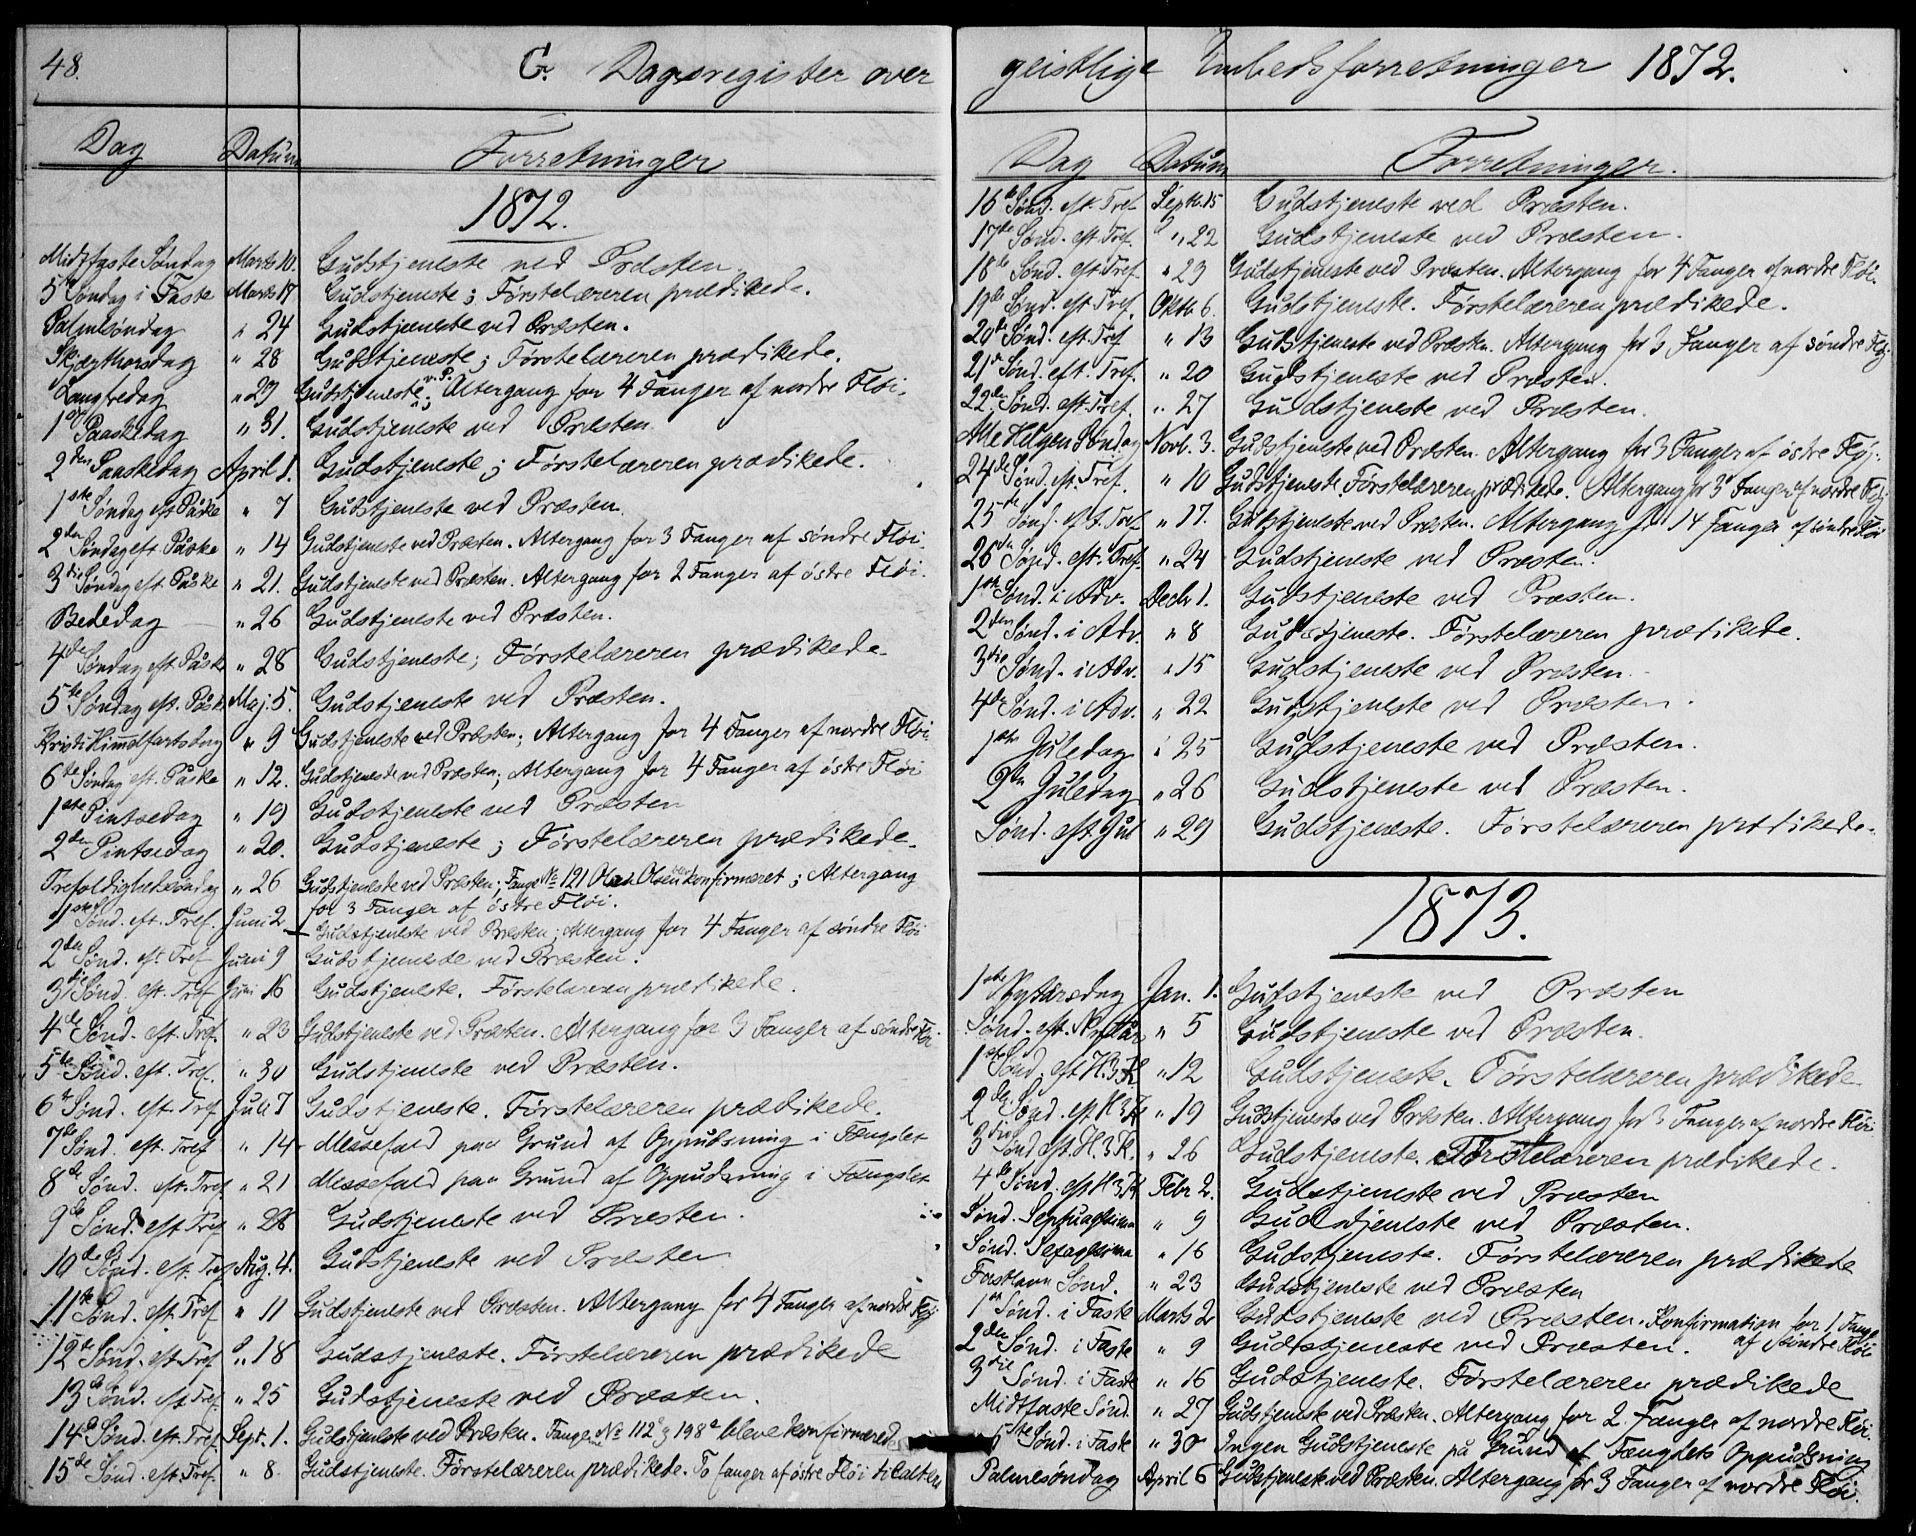 48.
C. Dagsregister over
Dag Datum Forretninger
1872.
Midtfaste Søndag Marts 10. Gudstjeneste ved Præsten.
5te Søndag i Faste Marts 17 Gudstjeneste; Førstelæreren prædikede.
Palmesøndag " 24 Gudstjeneste ved Præsten.
Skjærthorsdag " 28 Gudstjeneste; Førstelæreren prædikede.
Langfredag " 29 Gudstjeneste v. P.; Altergang for 4 Fanger af nordre Fløi.
1ste Paaskedag " 31. Gudstjeneste ved Præsten.
2den Paaskedag April 1. Gudstjeneste; Førstelæreren prædikede.
1ste Søndag eft Påske " 7 Gudstjeneste ved Præsten.
2den Søndag eft. Påske " 14 Gudstjeneste ved Præsten. Altergang for 3 Fanger af søndre Fløi.
3die Søndag eft. Påske " 21. Gudstjeneste ved Præsten. Altergang for 2 Fanger af østre Fløi.
Bededag " 26 Gudstjeneste ved Præsten.
4de Søndag eft. Påsk " 28 Gudstjeneste; Førstelæreren prædikede.
5te Søndag eft. Påsk Maj. 5. Gudstjeneste ved Præsten.
Kristi Himmelfartsdag " 9 Gudstjeneste ved Præsten; Altergang for 4 Fanger af nordre Fløi.
6te Søndag eft. Påske " 12. Gudstjeneste ved Præsten; Altergang for 4 Fanger af østre Fløi
1ste Pintsedag " 19 Gudstjeneste ved Præsten
2den Pintsedag " 20. Gudstjeneste; Førstelæreren prædikede.
Trefoldighedssøndag " 26 Gudstjeneste ved Præsten; Fange No 121 Olsen konfirmeret; Altergang
for 3 Fanger af østre Fløi.
1ste Sønd. eft. Tref. Juni 2 Gudstjeneste ved Præsten; Altergang for 4 Fanger af søndre Fløi
2den Sønd. eft. Tref Juni 9 Gudstjeneste ved Præsten.
3die Sønd. eft. Tref Juni 16 Gudstjeneste. Førstelæreren prædikede.
4de Sønd. eft. Tref. " 23 Gudstjeneste ved Præsten. Altergang for 3 Fanger af søndre Fløi.
5te Sønd. eft. Tref. " 30 Gudstjeneste ved Præsten.
6te Sønd. eft. Tref Juli 7 Gudstjeneste. Førstelæreren prædikede.
7de Sønd. eft. Tref " 14 Messefald paa Grund af Oppudsning i Fængslet
8de Sønd. eft. Tref " 21 Messefald paa Grund af Oppudsning i Fængslet
9de Sønd. eft. Tref " 28 Gudstjeneste ved Præsten.
10de Sønd. eft. Tref Aug. 4. Gudstjeneste ved Præsten
11te Sønd. eft. Tref " 11 Gudstjeneste ved Præsten. Altergang for 4 Fanger af nordre Fløj
12te Sønd. eft. Tref " 18 Gudstjeneste. Førstelæreren prædikede
13de Sønd. eft. Tref. " 25 Gudstjeneste ved Præsten.
14de Sønd. eft. Tref. Sept. 1. Gudstjeneste ved Præsten. Fangerne No 112 og 198 bleve konfirmerede
15de Sønd. eft. Tref. " 8. Gudstjeneste. Førstelæreren prædikede. To fanger af østre Fløi til alters
geistlige Embedsforretninger 1872.
Dag Datum Forretninger.
16de Sønd. eft. Tref Septb. 15 Gudstjeneste ved Præsten.
17de Sønd. eft. Tref. " 22 Gudstjeneste ved Præsten.
18de Sønd. eft. Tref. " 29 Gudstjeneste ved Præsten. Altergang for 4 Fanger af nordre Fløi.
19de Sønd. eft. Tref. Oktb. 6. Gudstjeneste. Førstelæreren prædikede.
20de Sønd. eft. Tref " 13 Gudstjeneste ved Præsten. Altergang for 3 Fanger af søndre Fløj.
21de Sønd. eft. Tref. " 20 Gudstjeneste ved Præsten.
22de Sønd. eft. Tref. " 27 Gudstjeneste ved Præsten.
Alle Helgen Søndag Novb. 3. Gudstjeneste ved Præsten. Altergang for 3 Fanger af østre Fløj.
24de Sønd. eft. Tref. " 10 Gudstjeneste. Førstelæreren prædikede. Altergang for 3 Fanger af nordre Fløj
25de Sønd. eft. Tref. " 17. Gudstjeneste ved Præsten. Altergang for 14 Fanger af søndre Fløi
26de Sønd. eft. Tref. " 24 Gudstjeneste ved Præsten.
1ste Sønd. i Adv. Decbr 1. Gudstjeneste ved Præsten.
2den Sønd. i Adv. " 8 Gudstjeneste. Førstelæreren prædikede.
3die Sønd. i Adv. " 15 Gudstjeneste ved Præsten.
4de Sønd. i Adv. " 22 Gudstjeneste ved Præsten.
1ste Juledag " 25 Gudstjeneste ved Præsten.
2den Juledag " 26 Gudstjeneste ved Præsten.
Sønd. eft. Jul " 29 Gudstjeneste. Førstelæreren prædikede.
1873.
1ste Nytårsdag Jan. 1. Gudstjeneste ved Præsten
Sønd. eft. Nytår " 5 Gudstjeneste ved Præsten.
1ste Sønd. eft H. 3 K " 12 Gudstjeneste. Førstelæreren prædikede
2den Sønd. eft. H 3 K " 19 Gudstjeneste ved Præsten. Altergang for 3 Fanger af nordre Fløi
3die Sønd eft. H. 3 K. " 26 Gudstjeneste. Førstelæreren prædikede.
4de Sønd. eft H 3 K Febr 2. Gudstjeneste ved Præsten
Sønd. Septuagesima " 9 Gudstjeneste ved Præsten.
Sønd. Sexagesima " 16 Gudstjeneste. Førstelæreren prædikede
Fastelavn Sønd. " 23 Gudstjeneste ved Præsten
1ste Sønd. i Faste Marts 2 Gudstjeneste ved Præsten. Konfirmation for 1 Fange
af søndre Fløi
2den Sønd. i Faste " 9 Gudstjeneste ved Præsten.
3die Sønd. i Faste " 16 Gudstjeneste. Førstelæreren prædikede
Midtfaste Sønd. " 27 Gudstjeneste ved Præsten. Altergang for 2 Fanger af nordre Fløi.
5te Sønd. i Faste " 30 Ingen Gudstjeneste på Grund af Fængslets Oppudsning
Palmesøndag April 6 Gudstjeneste ved Præsten. Altergang for 3 Fanger af nordre Fløi.